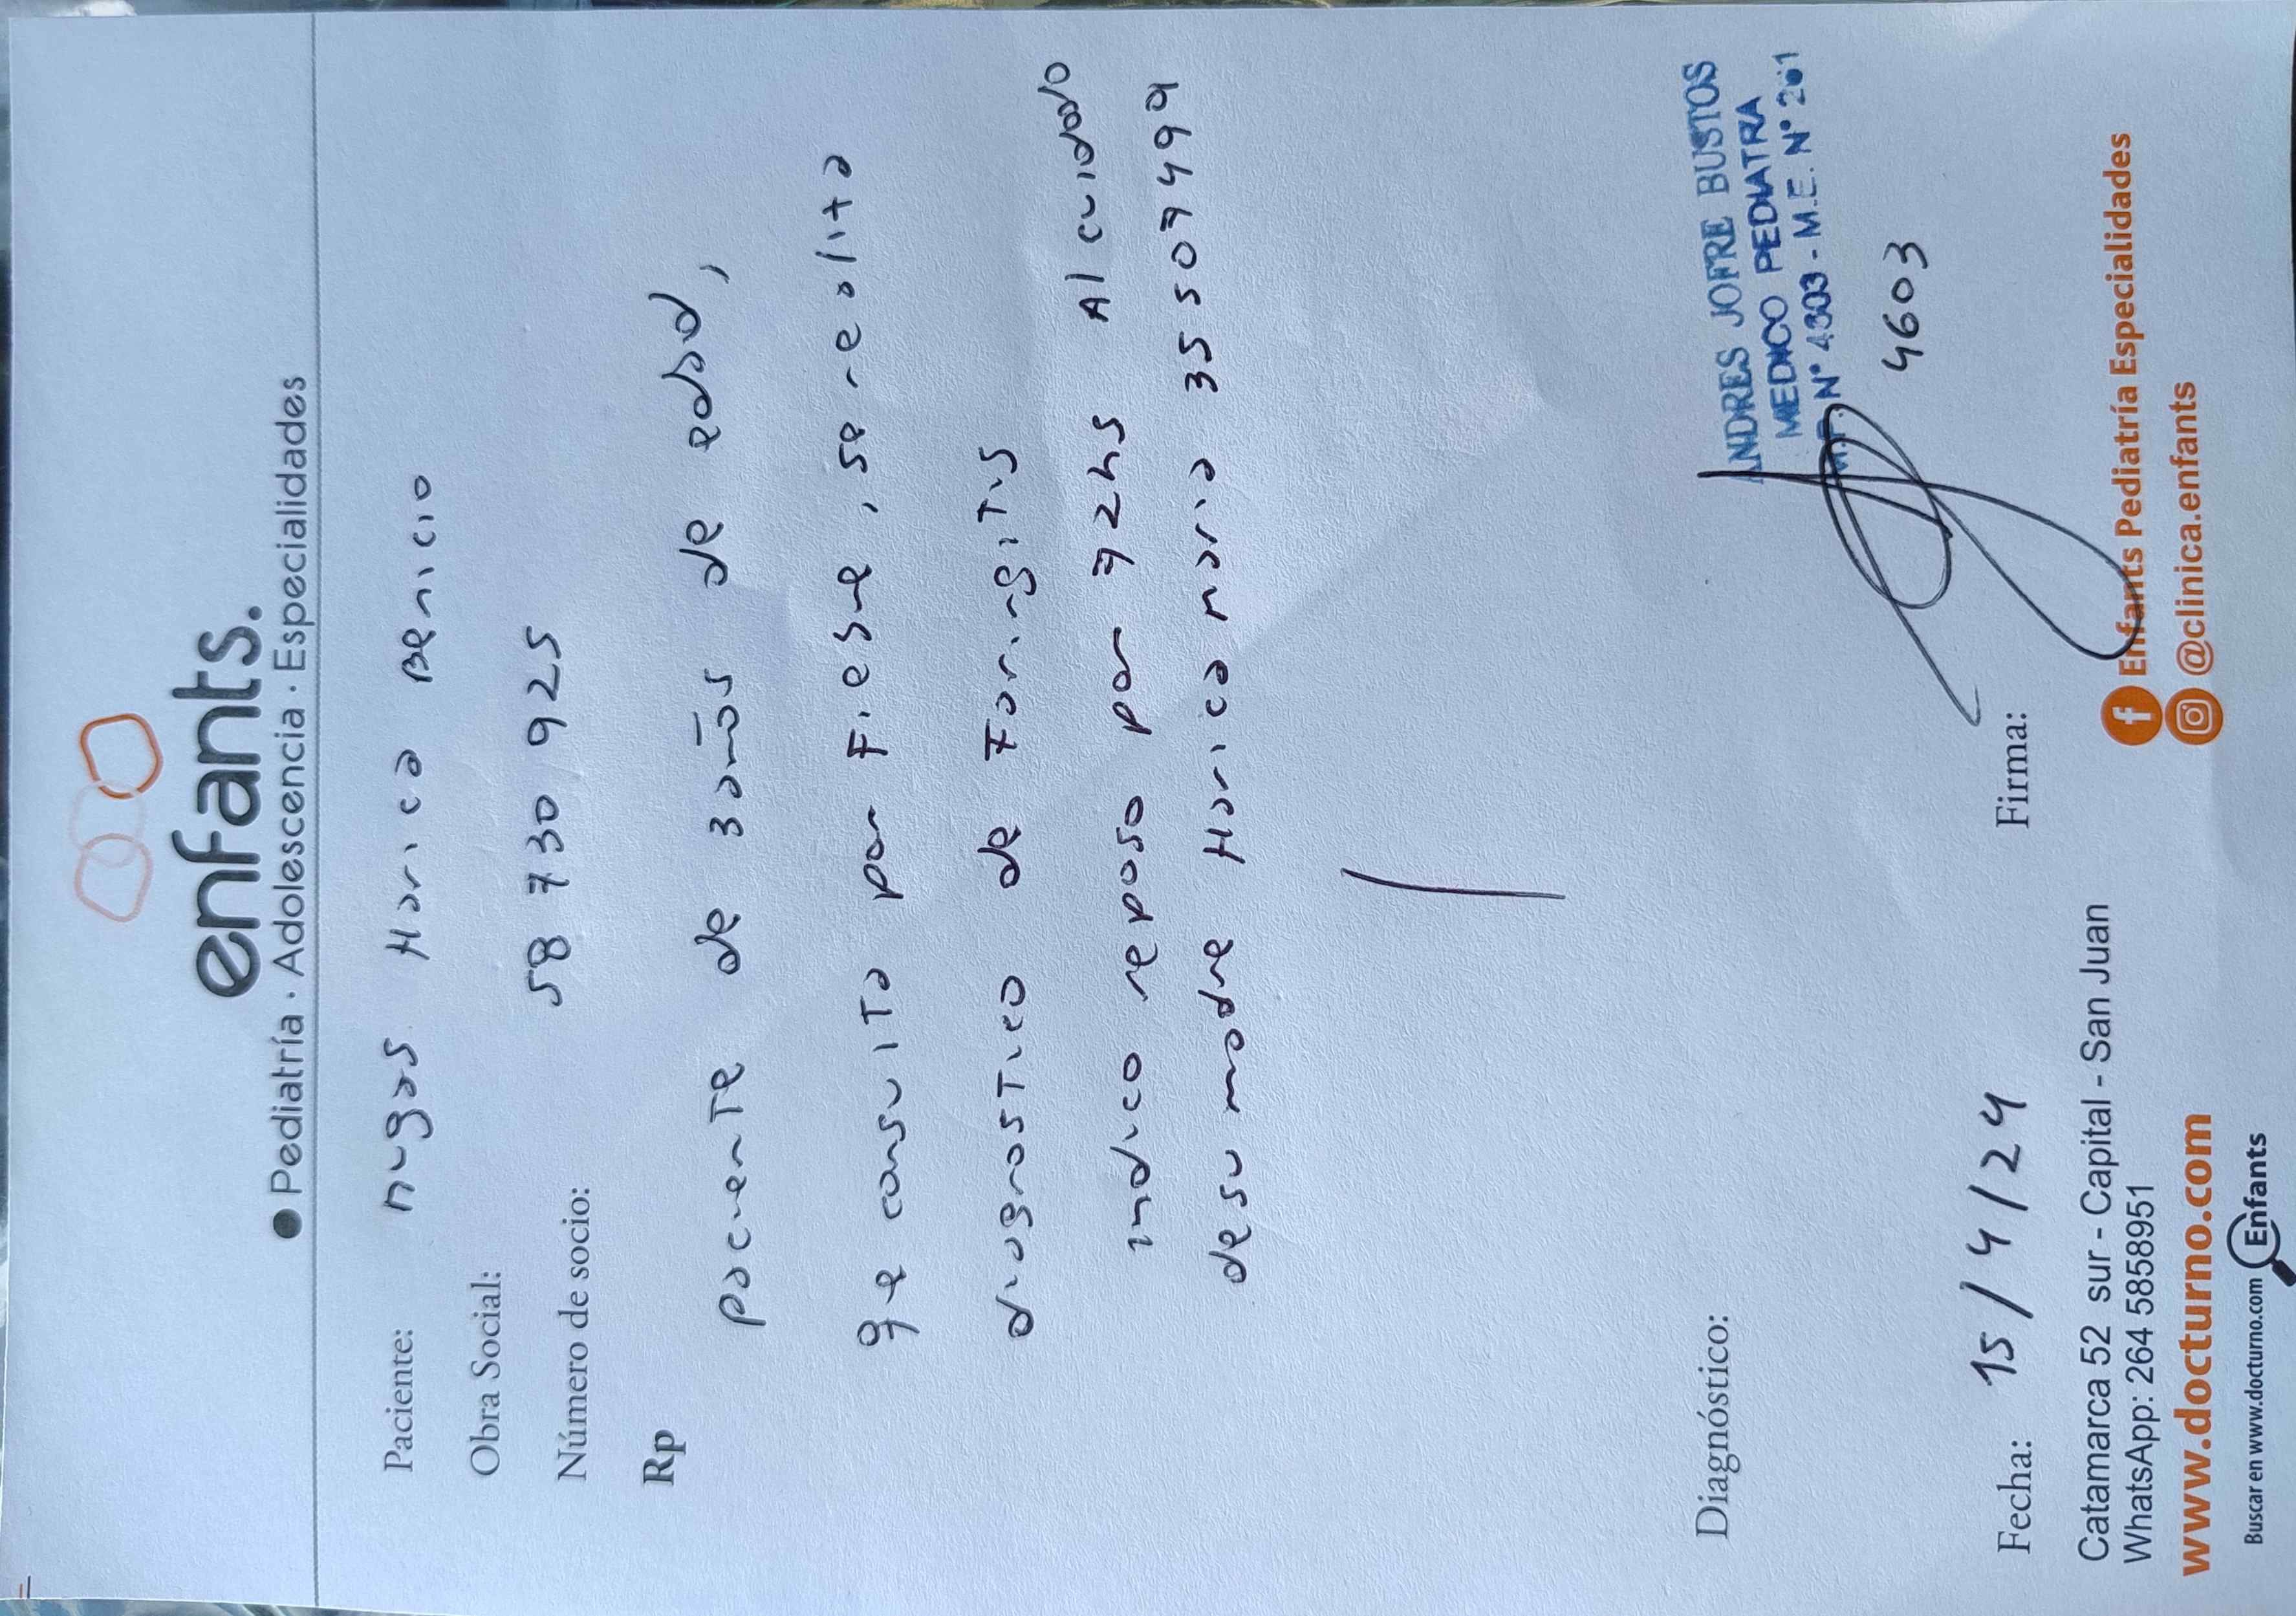 enfants.
Pediatría · Adolescencia · Especialidades
Paciente: nugas Harica Benicio
Obra Social:
Número de socio: 58 730 925
Rp
paciente de 3 años de edad,
qe consulta por Fiebre, se realita
diagnostico de Faringitis
indico reposo por 72hs Al cuidado
de su madre Harica maria 35507499
Diagnóstico:
ANDRES JOFRE BUSTOS
MEDICO PEDIATRA
M.P. N° 4303 - M.E. N° 261
4603
Fecha: 15/4/24 Firma:
Catamarca 52 sur - Capital - San Juan
WhatsApp: 264 5858951
www.docturno.com
Buscar en www.docturno.com Enfants
Enfants Pediatría Especialidades
@clinica.enfants